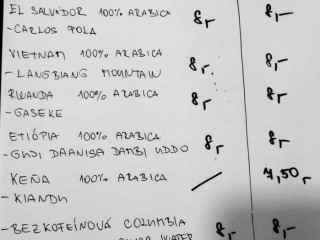 EL SALVÁDOR 100% ARABICA 8,- 8,-
- CARLOS POLA
VIETNAM 100% ARABICA 8,- 8,-
- LANGBIANG MOUNTAIN
RWANDA 100% ARABICA 8,- 8,-
- GASEKE
ETIÓPIA 100% ARABICA 8,- 8,-
- GUJI DAANISA DAMBI UDDO
KEŇA 100% ARABICA / 7,50,-
- KIANDU
- BEZKOFEÍNOVÁ COLUMBIA 8,- 8,-
WATER